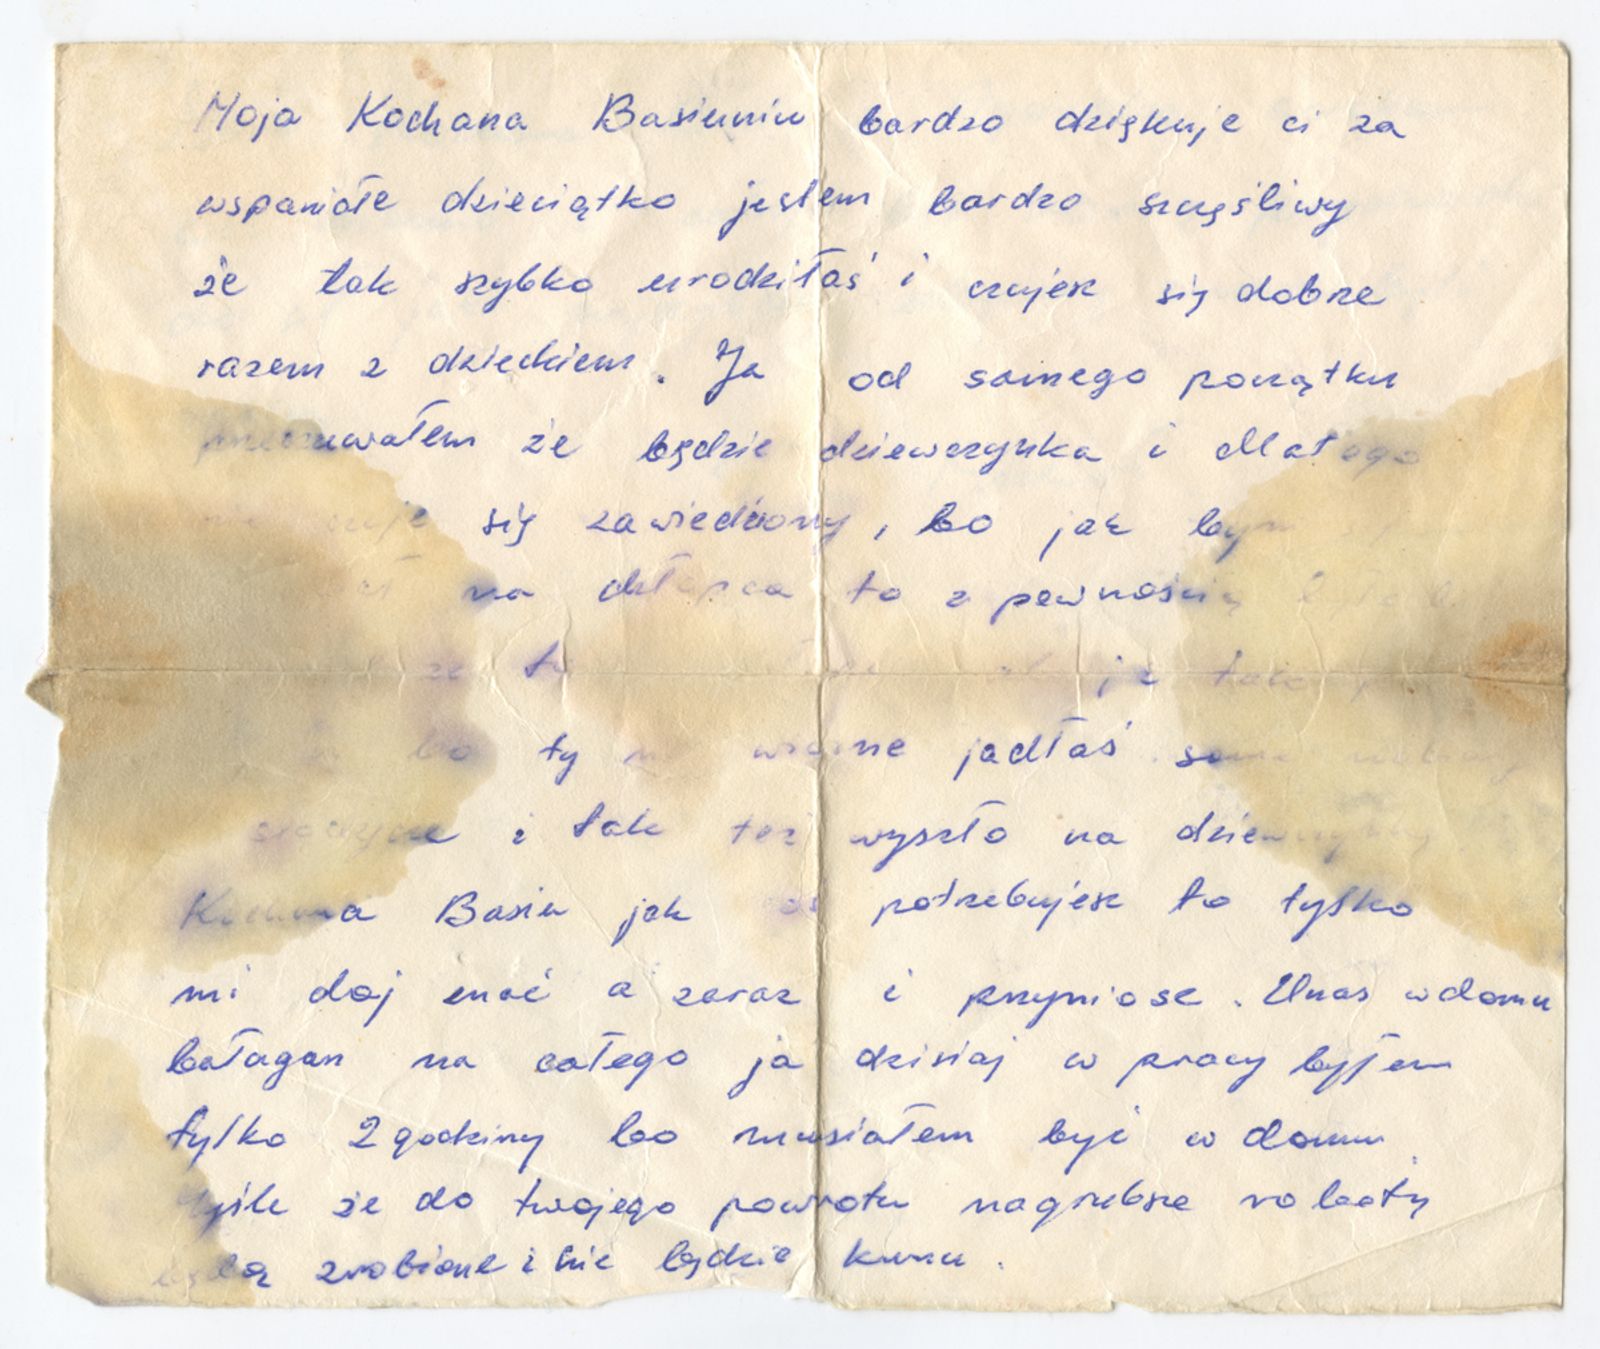 Moja Kochana Basiuniu bardzo dziękuje ci za
wspaniałe dzieciątko jestem bardzo szczęśliwy
że tak szybko urodziłaś i czujesz się dobrze
razem z dzieckiem. Ja od samego początku
przeczuwałem że będzie dziewczynka i dlatego
czuje się zawiedziony, bo jak bym
na chłopca to z pewnością
że ja tak
bo ty jadłaś same
i tak też wyszło na dziewczynkę
Kochana Basiu jak coś potrzebujesz to tylko
mi daj znać a zaraz i przyniose. Unas wdomu
bałagan na całego ja dzisiaj w pracy byłem
tylko 2 godziny bo musiałem być w domu
Myśle że do twojego powrotu nagrubsze roboty
będą zrobione i nie będzie kurzu.